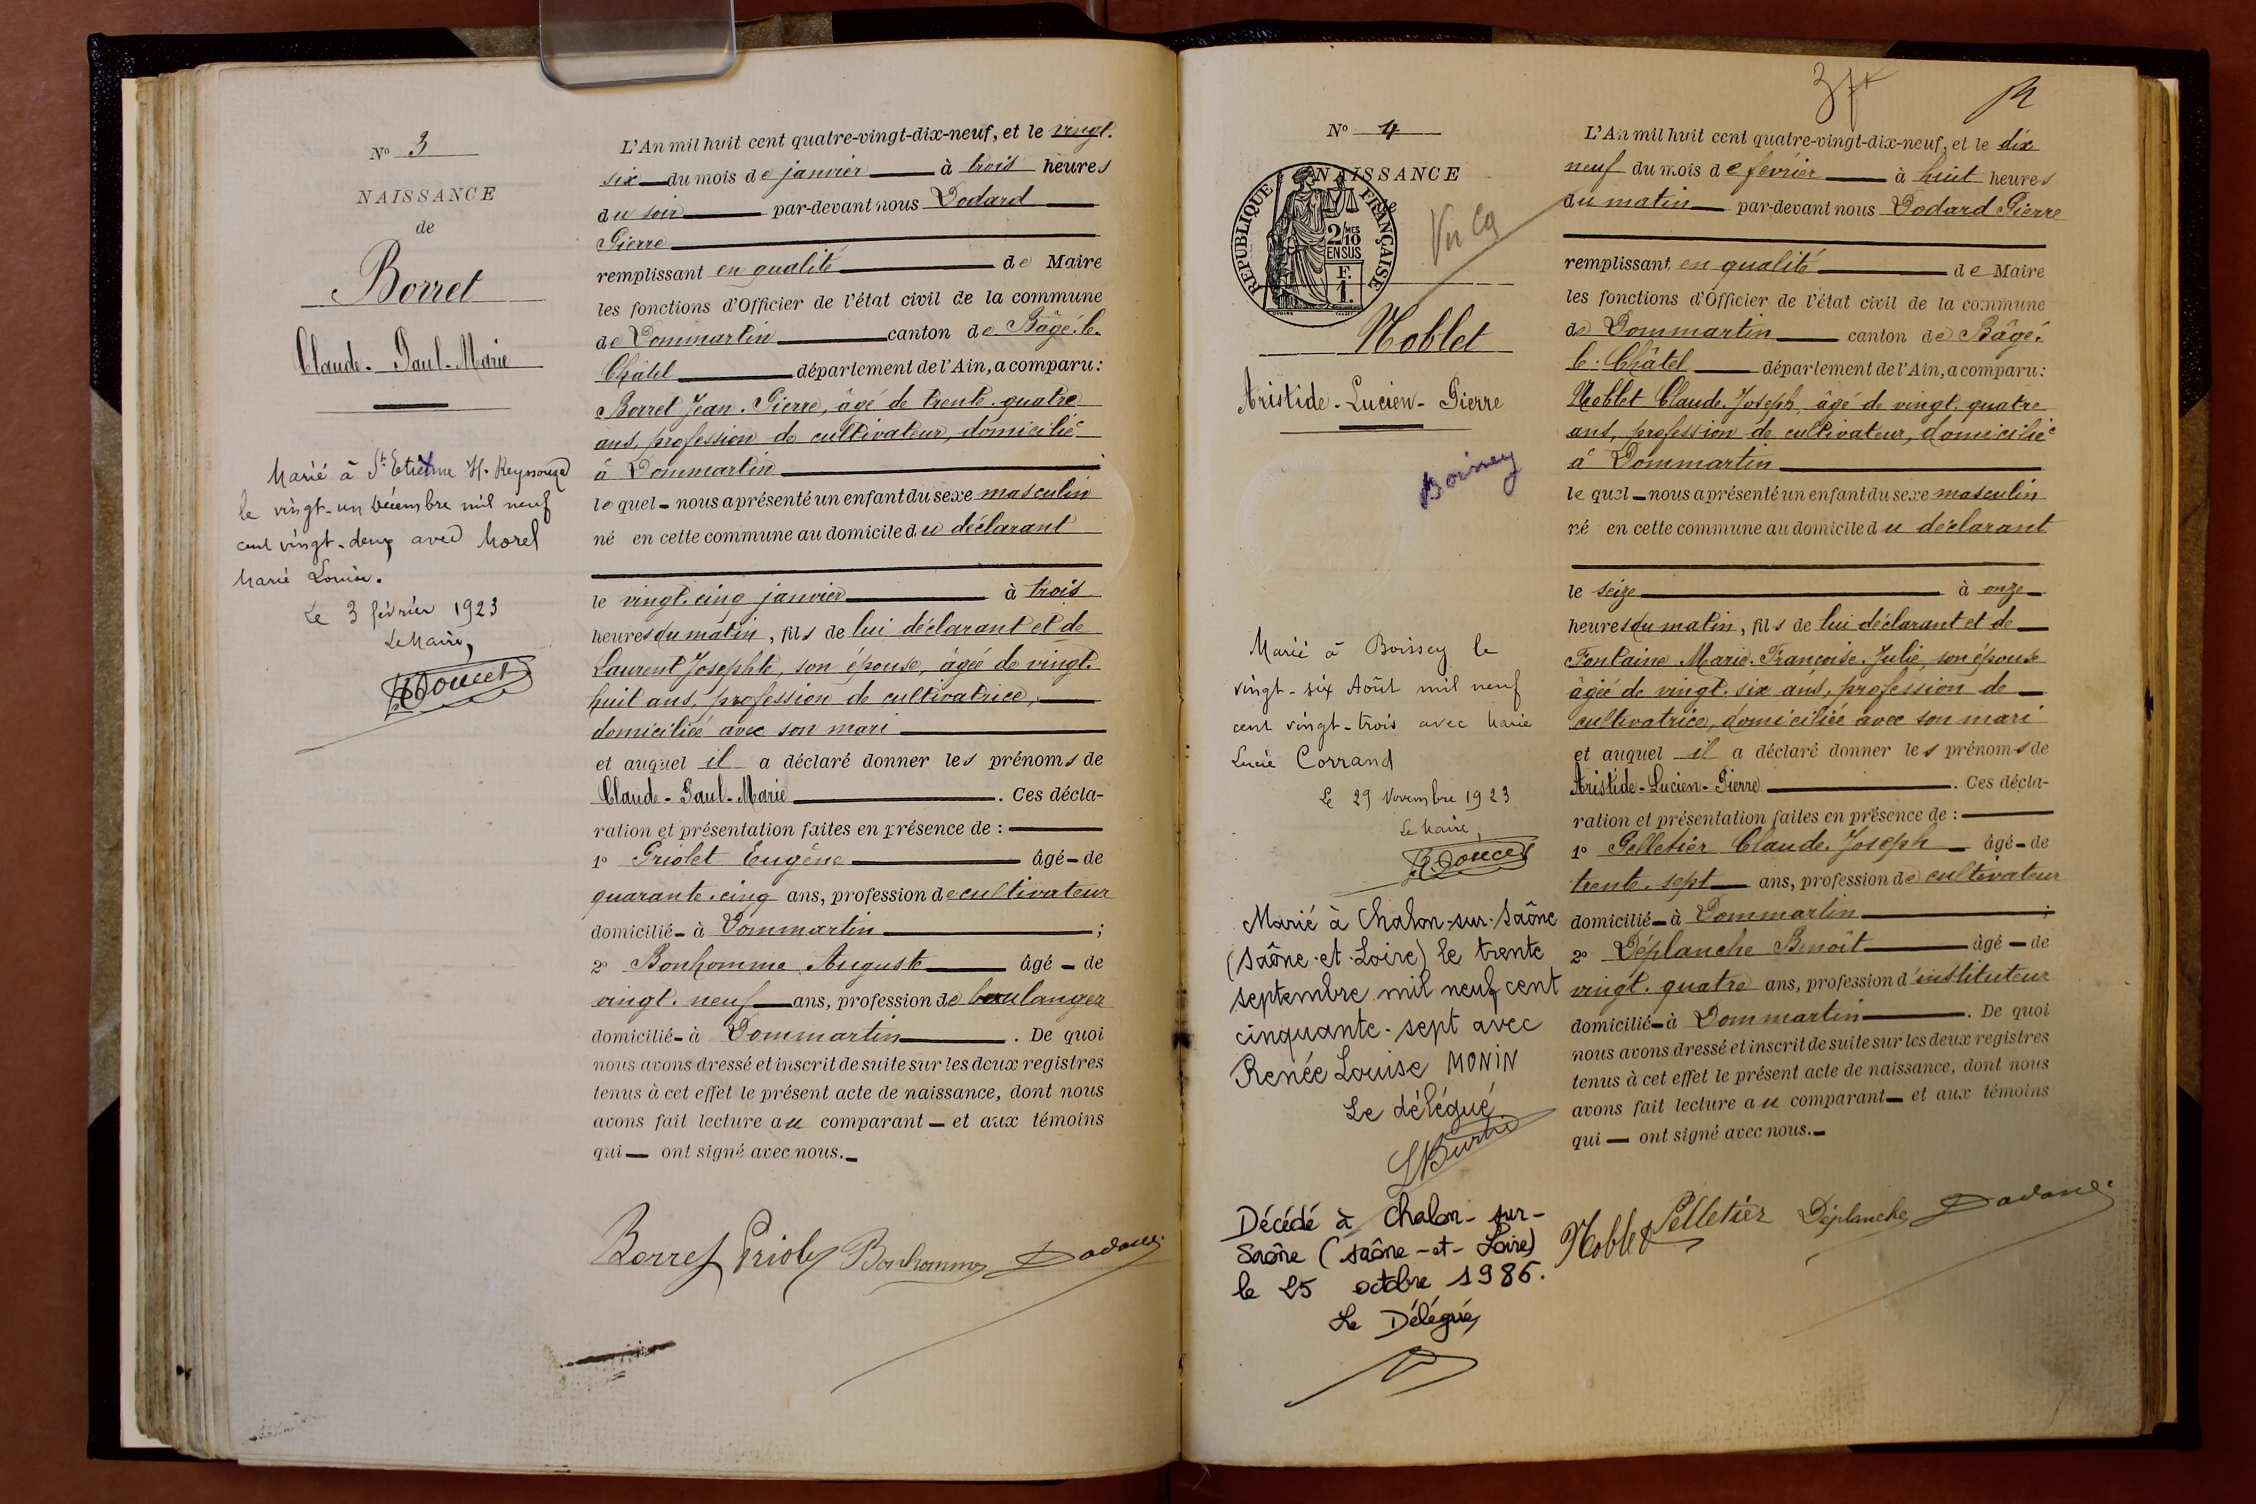 N° 3
NAISSANCE
de
Borret
Claude-Paul-Marie
Marié à St Etienne s/ Reyssouze
le vingt-un Décembre mil neuf
cent vingt-deux avec Morel
Marie Louise.
Le 3 février 1923
Le Maire,
Doucet
L'An mil huit cent quatre-vingt-dix-neuf, et le vingt-
six du mois de janvier à trois heures
du soir par-devant nous Dodard
Pierre
remplissant en qualité de Maire
les fonctions d'Officier de l'état civil de la commune
de Dommartin canton de Bâgé-le-
Châtel département de l'Ain, a comparu :
Borret Jean-Pierre, âgé de trente-quatre
ans, profession de cultivateur, domicilié
à Dommartin
lequel nous a présenté un enfant du sexe masculin
né en cette commune au domicile du déclarant
le vingt-cinq janvier à trois
heures du matin, fils de lui déclarant et de
Laurent Josephte, son épouse, âgée de vingt-
huit ans, profession de cultivatrice,
domiciliée avec son mari
et auquel il a déclaré donner les prénoms de
Claude-Paul-Marie. Ces décla-
ration et présentation faites en présence de :
1° Griolet Eugène âgé de
quarante-cinq ans, profession de cultivateur
domicilié à Dommartin ;
2° Bonhomme Auguste âgé de
vingt-neuf ans, profession de boulanger
domicilié à Dommartin. De quoi
nous avons dressé et inscrit de suite sur les deux registres
tenus à cet effet le présent acte de naissance, dont nous
avons fait lecture au comparant et aux témoins
qui ont signé avec nous.
Borret Griolet Bonhomme Dodard
N° 4
NAISSANCE
de
RÉPUBLIQUE FRANÇAISE
2/10 MES
EN SUS
F.
1.
Noblet
Aristide-Lucien-Pierre
Boissey
Marié à Boissey le
vingt-six Août mil neuf
cent vingt-trois avec Marie
Lucie Corrand
Le 29 Novembre 1923
Le Maire,
Doucet
Marié à Chalon-sur-Saône
(Saône-et-Loire) le trente
septembre mil neuf cent
cinquante-sept avec
Renée Louise MONIN
Le délégué
Décédé à Chalon-sur-
Saône (Saône-et-Loire)
le 25 octobre 1986.
Le Délégué,
L'An mil huit cent quatre-vingt-dix-neuf, et le dix
neuf du mois de février à huit heures
du matin par-devant nous Dodard Pierre
remplissant en qualité de Maire
les fonctions d'Officier de l'état civil de la commune
de Dommartin canton de Bâgé-
le-Châtel département de l'Ain, a comparu :
Noblet Claude-Joseph, âgé de vingt-quatre
ans, profession de cultivateur, domicilié
à Dommartin
lequel nous a présenté un enfant du sexe masculin
né en cette commune au domicile du déclarant
le seize à onze
heures du matin, fils de lui déclarant et de
Fontaine Marie-Françoise-Julie, son épouse
âgée de vingt-six ans, profession de
cultivatrice, domiciliée avec son mari
et auquel il a déclaré donner les prénoms de
Aristide-Lucien-Pierre. Ces décla-
ration et présentation faites en présence de :
1° Pelletier Claude-Joseph âgé de
trente-sept ans, profession de cultivateur
domicilié à Dommartin ;
2° Déplanche Benoît âgé de
vingt-quatre ans, profession d'instituteur
domicilié à Dommartin. De quoi
nous avons dressé et inscrit de suite sur les deux registres
tenus à cet effet le présent acte de naissance, dont nous
avons fait lecture au comparant et aux témoins
qui ont signé avec nous.
Noblet Pelletier Déplanche Dodard